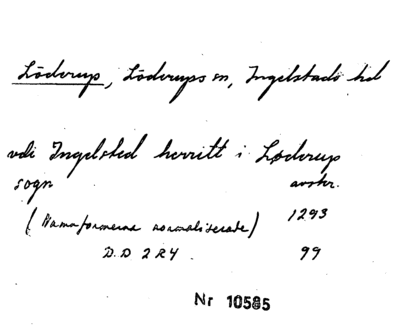 Löderup, Löderups sn, Ingelstads hd
udi Ingelsted herritt i Løderup
sogn avskr.
(Namnformerna normaliserade) 1293
D.D 2R4. 99
Nr 10585